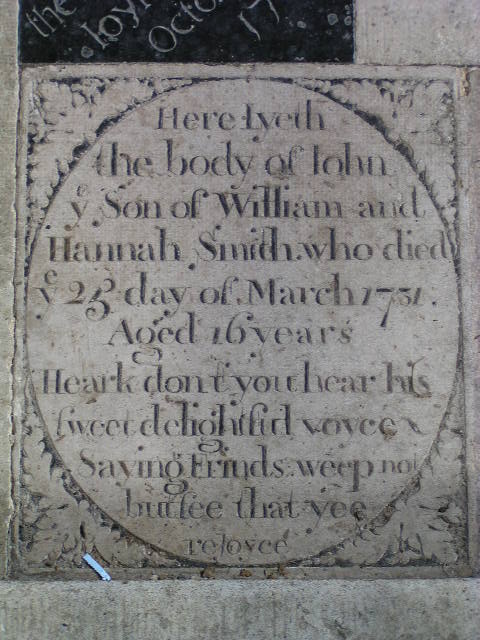 the
Octo
17
Here Lyeth
the body of Iohn
yᵉ Son of William and
Hannah Smith. who died
yᵉ 25 day of March 1731.
Aged 16 years
Heark don't you hear his
sweet delightfid voyce
Saying Frinds: weep not
but see that yee
reJoyce